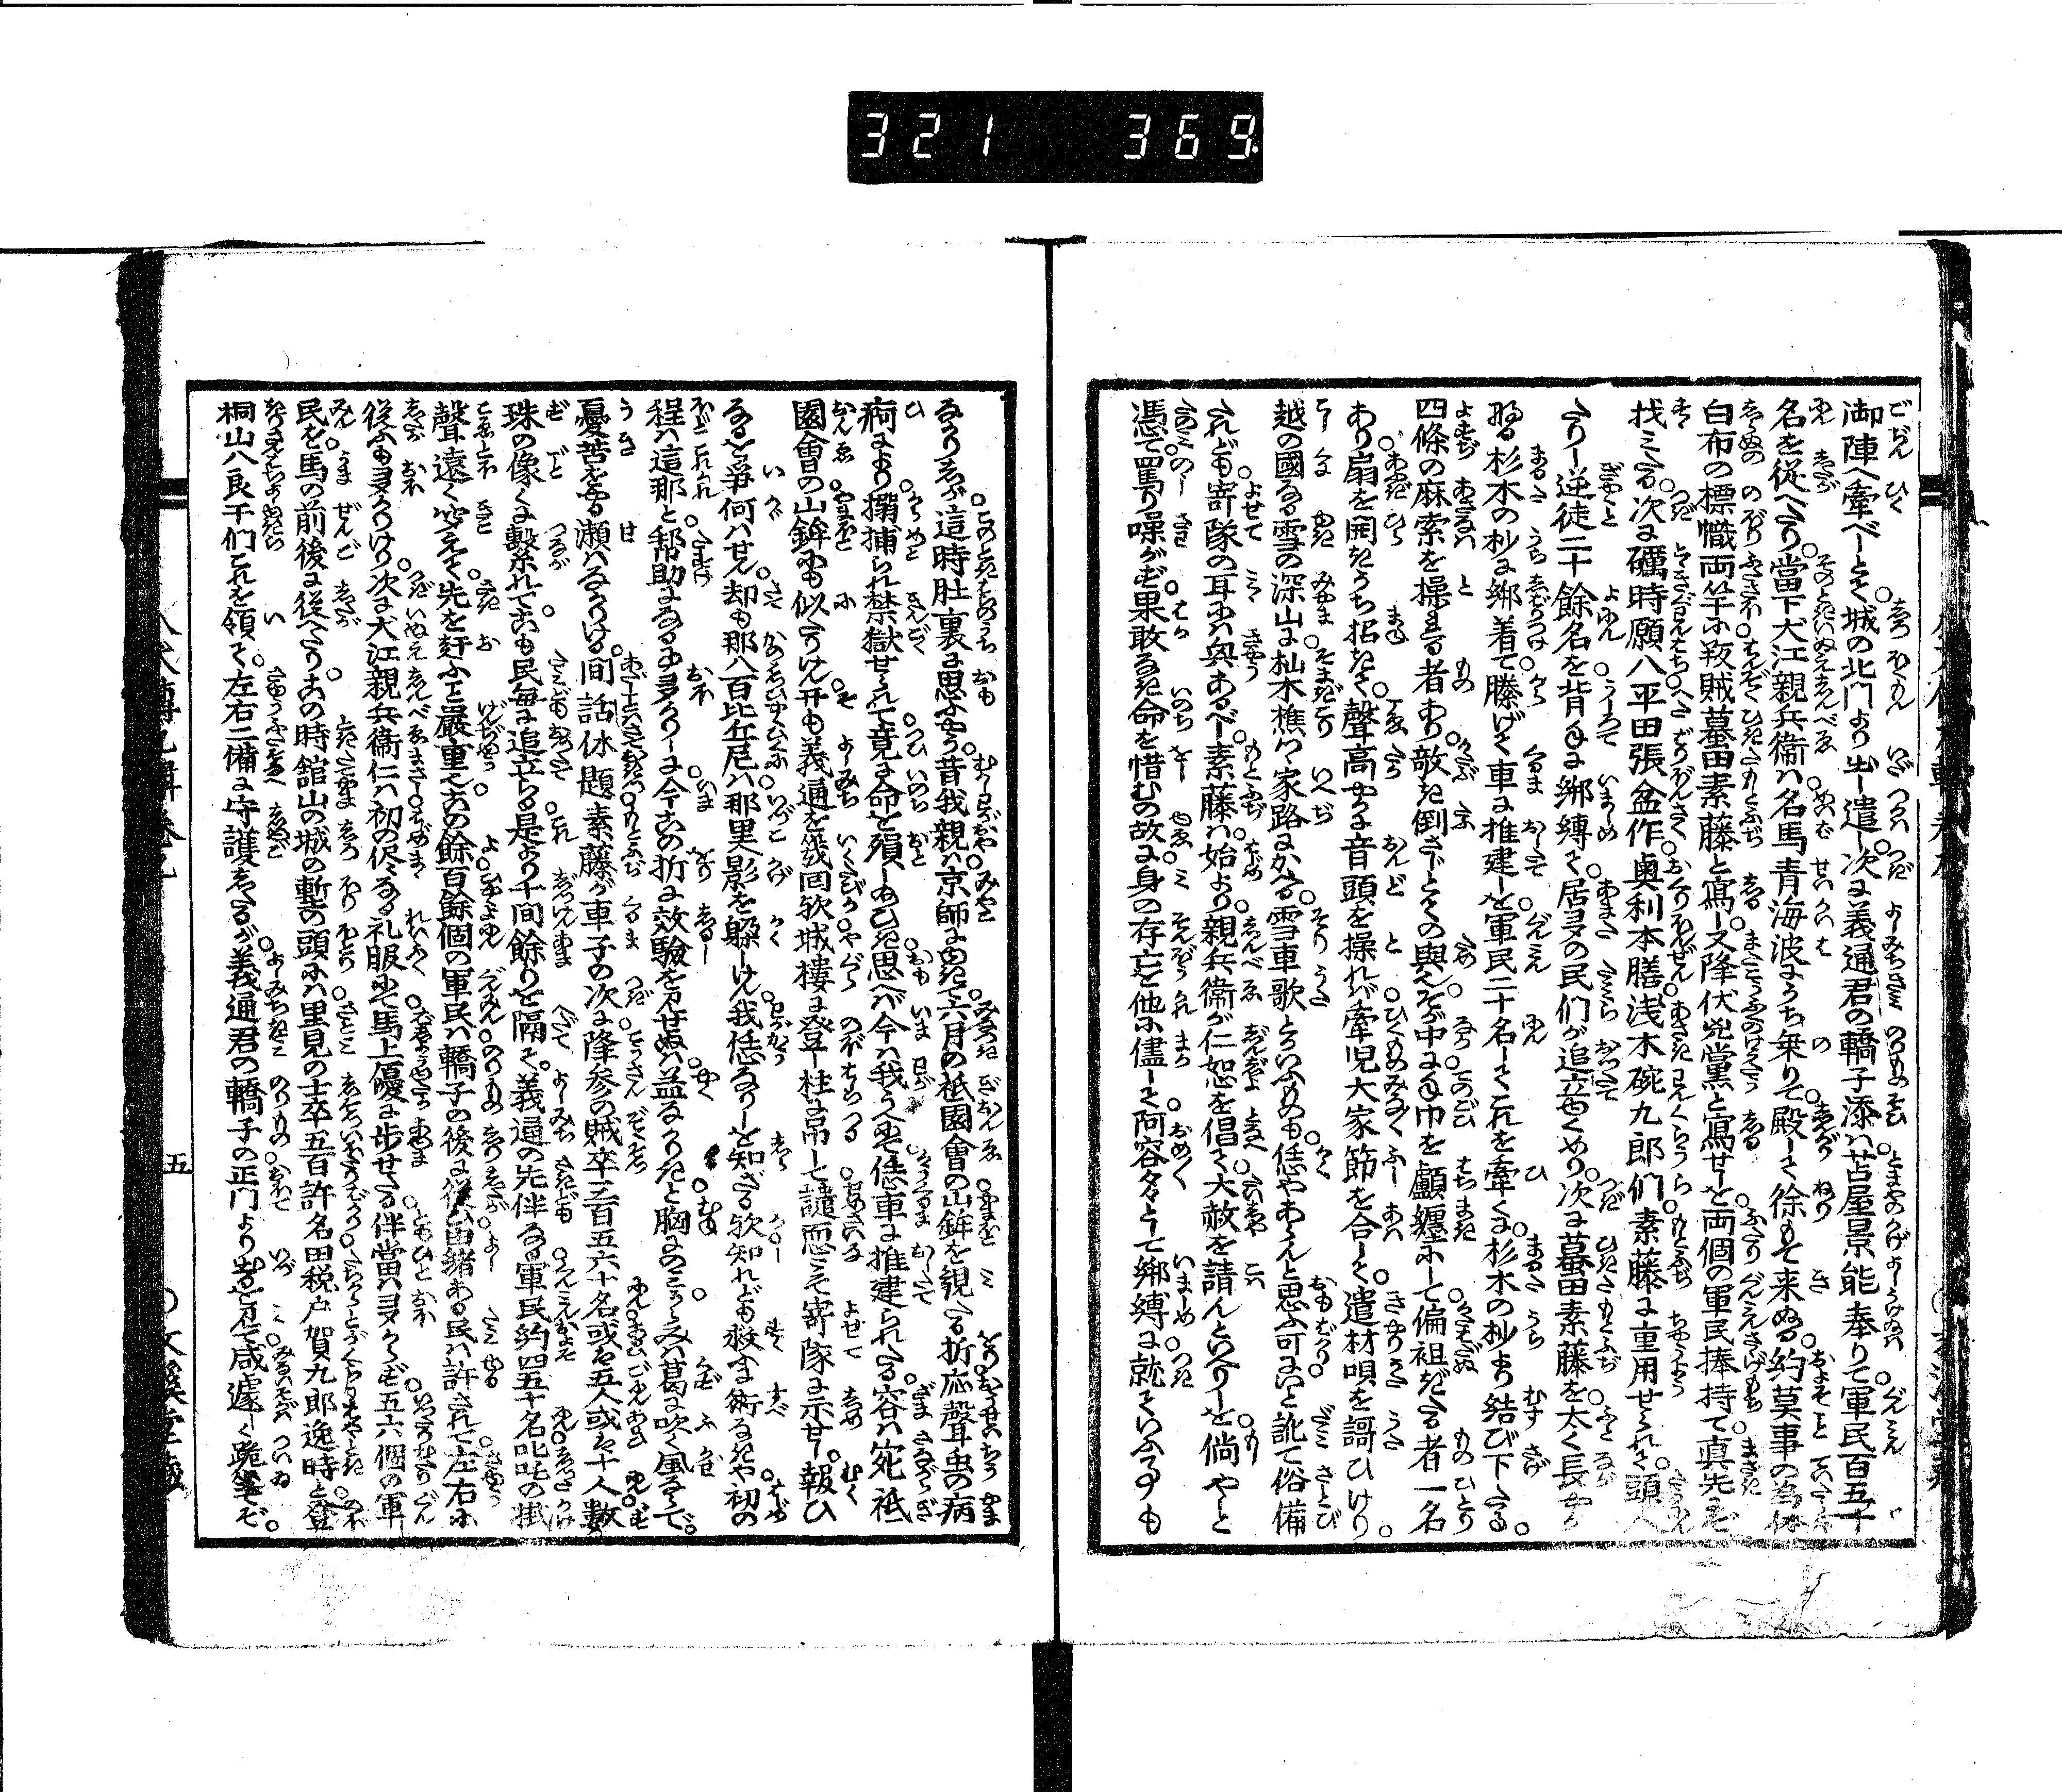 321 369
御陣へ牽べしとて城の北門より出し遣し次に義通君の轎子添ハ苫屋景能奉りて軍民百五十
名を従へたり當下犬江親兵衛ハ名馬青海波にうち乗りて殿して徐もて来ぬる約莫事の為体
白布の標幟両竿に叛賊蟇田素藤と寫し又降伏兇黨と寫せしを両個の軍民捧持て真先に
找ミたる次に礪時願八平田張盆作奥利本膳浅木碗九郎们素藤に重用せられし頭人
たりし逆徒二十餘名を背ざまに綁縛て居多の民们が追立ゆくめり次に蟇田素藤を太く長やか
なる杉木の杪に綁着て滕げて車に推建しを軍民二十名してこれを牽くに杉木の杪より結び下たる
四條の麻索を操る者あり敵を倒さじとての與なるべし中に手巾を顱纏にして偏袒ぎたる者一名
あり扇を開きうち招きて聲高やかに音頭を操れバ牽児大家節を合して遣材唄を謌ひけり
越の國なる雪の深山に杣木樵る家路にかへる雪車歌といふめるも恁やあらんと思ふ可にいと訛て俗備
たれども寄隊の耳にハ興あるべし素藤ハ始より親兵衛が仁恕を倡て大赦を請んといへりしを倘やと
憑て罵り噪がず果敢なき命を惜むの故に身の存亡を他に儘して阿容々々として綁縛に就ていふよしも
なかりしかバ這時肚裏に思ふやう昔我親ハ京師にありし六月の祇園會の山鉾を観たる折応聲虫の病
痾により搦捕られ禁獄せられて竟に命を殞しゐひき思へバ今ハ我うへにて恁車に推建られたる容ハ宛祇
園會の山鉾にも似たりけん开も義通を幾回欤城樓に登し柱に吊して譴懲こそ寄隊に示せし報ひ
なるを爭何ハせん却も那八百比丘尼ハ那里へ影を躱しけん我恁なりしを知ざる欤知れども救ふ術なきや初の
程ハ這那と幇助になる事多かりしに今この折に效驗を見せぬハ益なかりきと胸にのミうらみハ葛に吹く風ならで
憂苦をやる瀬ハなかりける間話休題素藤が車子の次に降参の賊卒三百五六十名或ハ五人或ハ十人數
珠の像くに繋れてこも民毎に追立らる是より千間餘りを隔て義通の先伴なる軍民約四五十名叱咜の掛
聲遠く聞えて先を趕ふこと嚴重その餘百餘個の軍民ハ轎子の後に従ふ由緒ある民ハ許されて左右に
従ふも多かりけり次に犬江親兵衛仁ハ初の侭なる礼服にて馬上優に歩せたる伴當ハ多からず五六個の軍
民を馬の前後に従へたりこの時舘山の城の塹の頭にハ里見の士卒五百許名田税戸賀九郎逸時と登
桐山八良于们これを領て左右二備に守護したるが義通君の轎子の正門より出るを見て咸遽しく跪坐ず
五